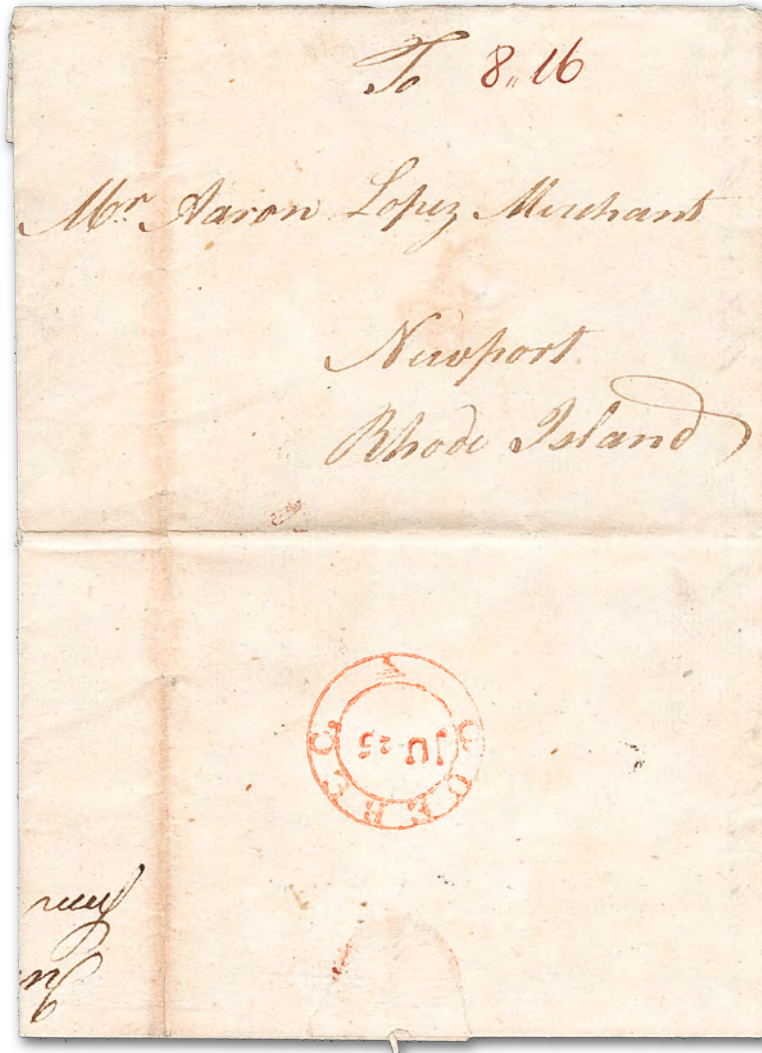 To 8,,16
Mr. Aaron Lopez Merchant
Newport
Rhode Island
QUEBEC
JU 25